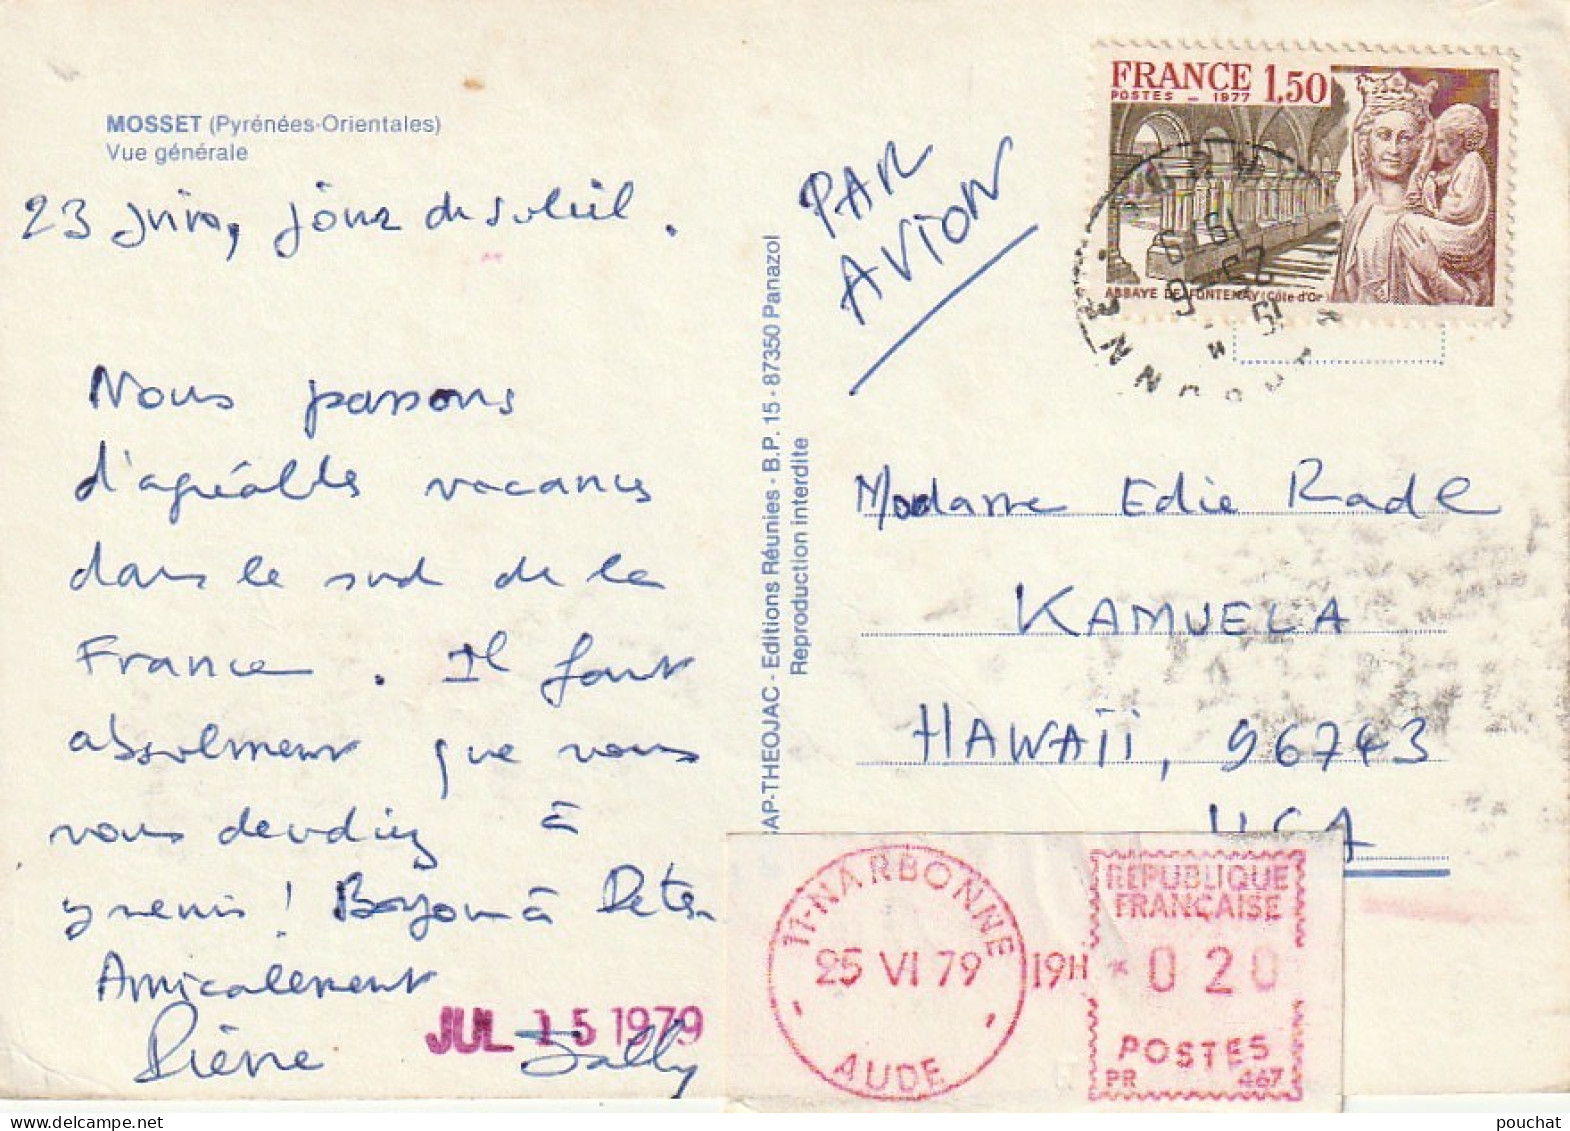 MOSSET (Pyrénées-Orientales)
Vue générale
23 juin, jour de soleil.
Nous passons
d'agréables vacances
dans le sud de la
France. Il faut
absolument que vous
vous deudiez à
y venir! Bonjour à Peter
Amicalement
Pierre Sally
JUL 15 1979
SAP-THEOJAC - Editions Réunies - B.P. 15 - 87350 Panazol
Reproduction interdite
PAR
AVION
FRANCE 1,50
POSTES - 1977
ABBAYE DE FONTENAY (Côte-d'Or)
NARBONNE
Madame Edie Radl
KAMUELA
HAWAII, 96743
USA
11-NARBONNE
25 VI 79 19H
AUDE
RÉPUBLIQUE
FRANÇAISE
* 0 2 0
POSTES
PR 467
pouchat